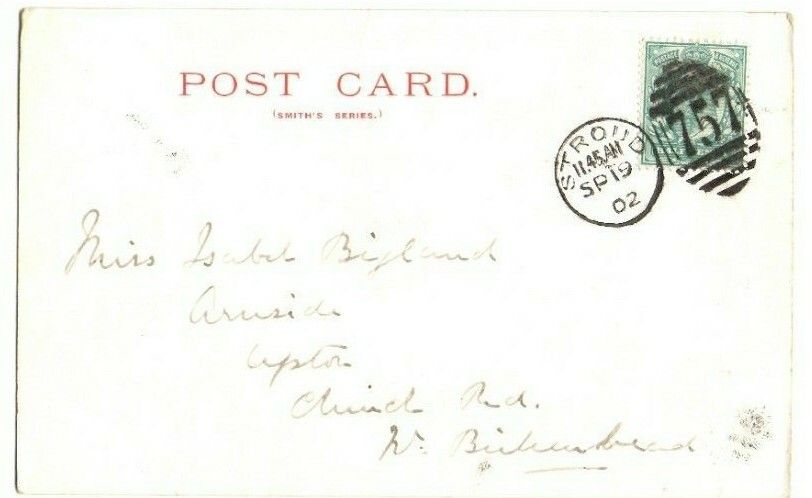 POST CARD.
(SMITH'S SERIES.)
STROUD
11.45 AM
SP 19
02
757
Miss Isabel Bigland
Arnside
Upton
Church Rd.
Nr. Birkenhead